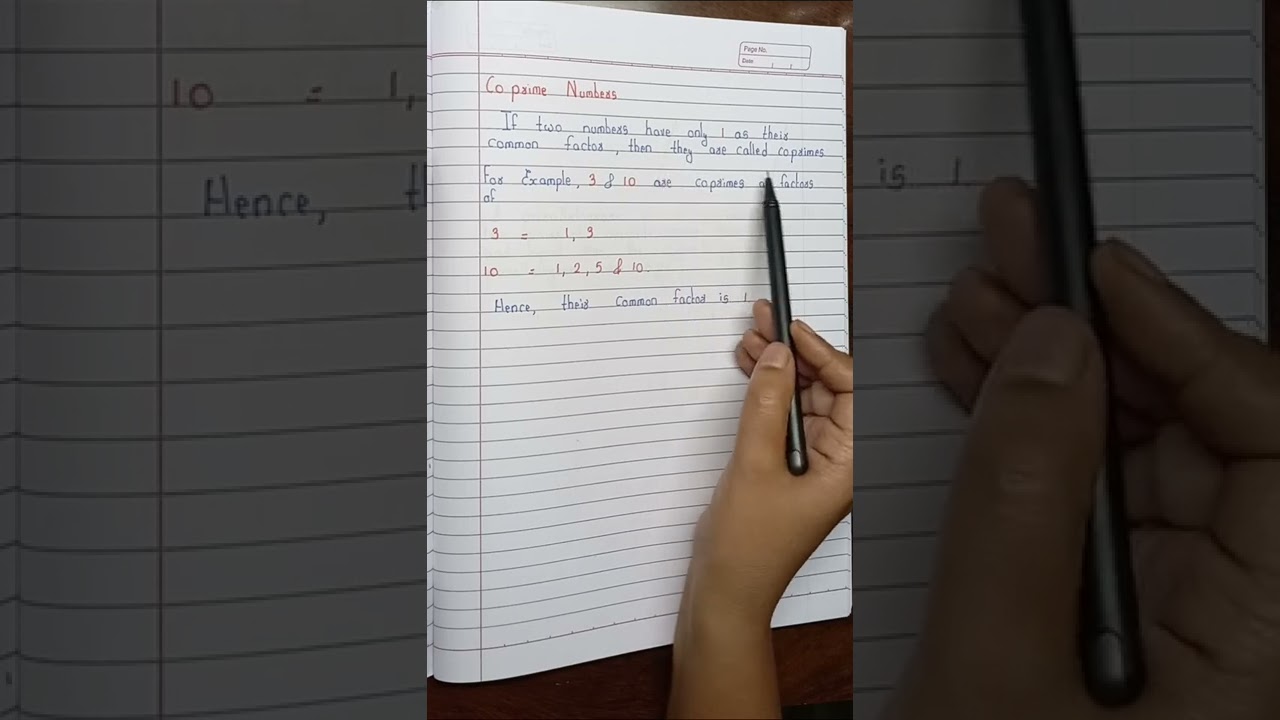 Page No.
Date
Coprime Numbers
If two numbers have only 1 as their
common factor, then they are called coprimes
For Example, 3 & 10 are coprimes factors
of
3 = 1, 3
10 = 1, 2, 5 & 10.
Hence, their common factor is 1
10 = 1,
Hence,
is 1.